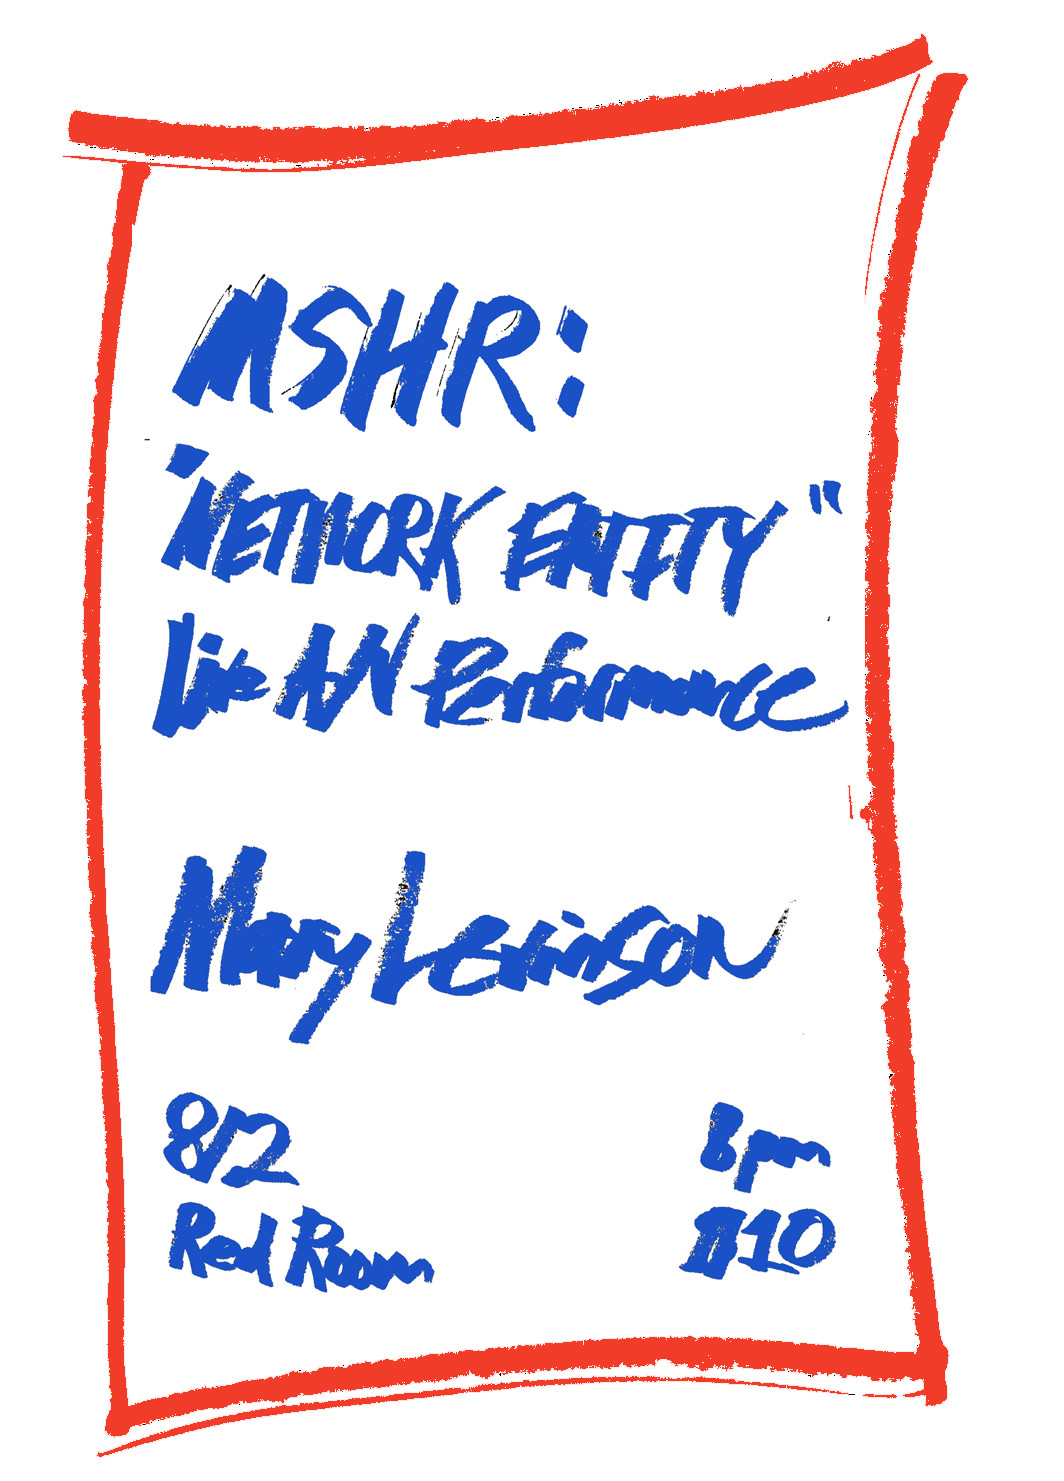 MSHR:
"NETWORK ENTITY"
Live A/V Performance
Mary Levinson
8/2
8pm
Red Room
$10